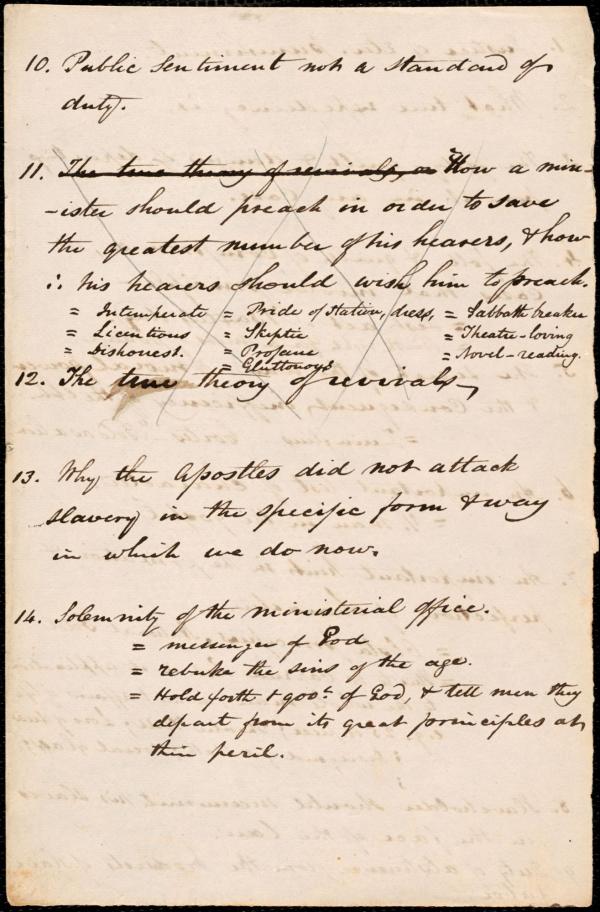 10. Public Sentiment not a standard of
duty.
11. The true theory of revivals, or How a min-
-ister should preach in order to save
the greatest number of his hearers, & how
∴ his hearers should wish him to preach.
= Intemperate = Pride of Station, dress, = Sabbath breaker
= Licentious = Skeptic = Theatre-loving
= Dishonest. = Profane = Novel-reading.
= Gluttonous
12. The true theory of revivals,
13. Why the Apostles did not attack
slavery in the specific form & way
in which we do now.
14. Solemnity of the ministerial office.
= messenger of God
= rebuke the sins of the age.
= Hold forth t goot. of God, & tell men they
depart from its great principles at
their peril.